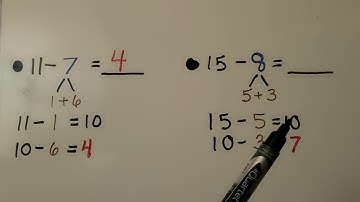 ● 11 - 7 = 4
1 + 6
11 - 1 = 10
10 - 6 = 4
● 15 - 8 = ____
5 + 3
15 - 5 = 10
10 - 3 7